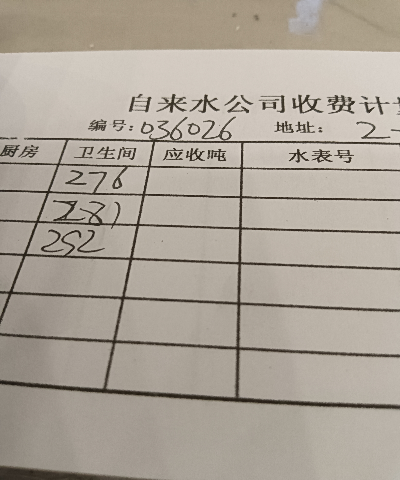 自来水公司收费计
编号: 036026 地址: 2-
厨房 卫生间 应收吨 水表号
276
281
252